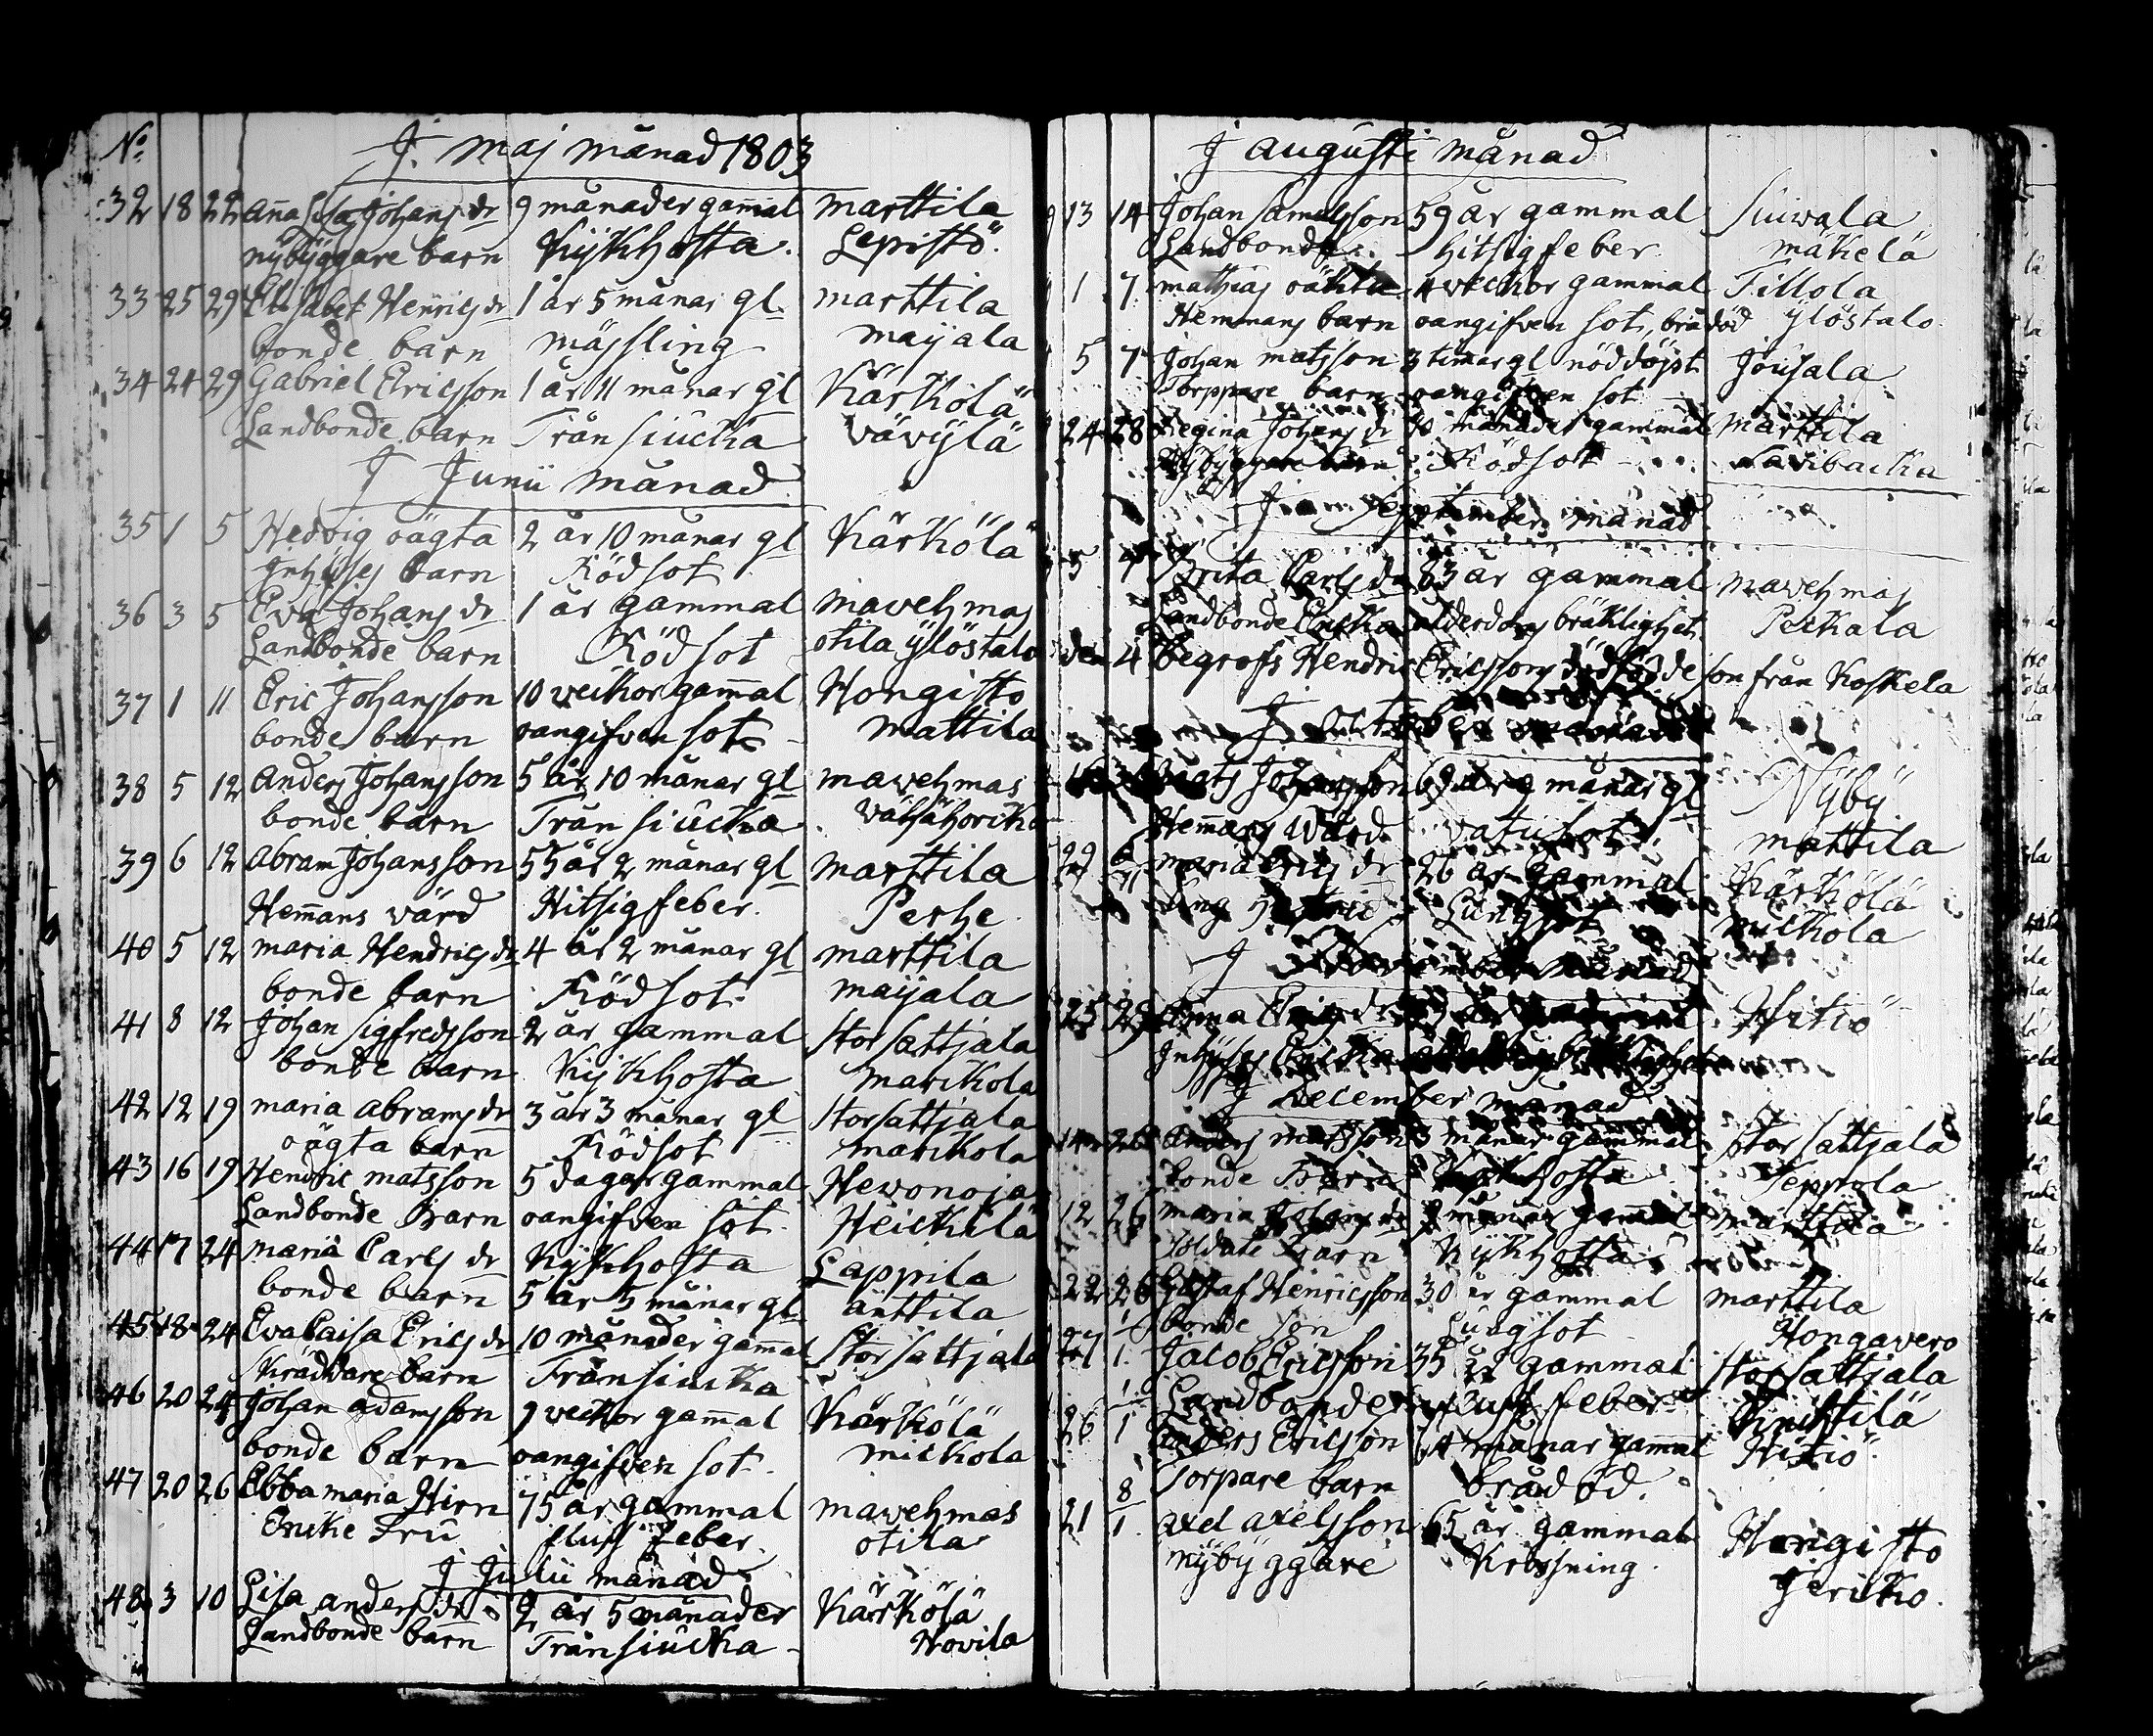 No.
J. maj månad 1803
32 18 22 Anna Lisa Johans dr 9 månader gam̄al marttila
nybyggare barn Kijkhosta. Lepistö.
33 25 29 Elisabet Henrics dr 1 år 5 månar gl marttila
bonde barn mässling maijala
34 24 29 Gabriel Ericsson 1 år 11 månar gl Kärkölä
Landbonde barn Trånsiucka vävÿlä
J Junii månad
35 1 5 Hedvig oägta 2 år 10 månar gl Kärkölä
Jnhyses barn Rödsot
36 3 5 Eva Johans dr 1 år gammal mavehmas
Landbonde barn Rödsot otila ÿlöstalo
37 1 11 Eric Johansson 10 veckor gam̄al Hongisto
bonde barn oangifven sot mattila
38 5 12 Anders Johansson 5 år 10 månar gl mavehmas
bonde barn Trånsiucka
39 6 12 Abram Johansson 55 år 2 månar gl marttila
Hem̄ans värd Hitsigfeber. Perhe
40 5 12 maria Hendrics dr 4 år 2 månar gl marttila
bonde barn Rödsot. maijala
41 8 12 Johan Sigfredsson 2 år gammal Storsattjala
bonde barn Kijkhosta marckola
42 12 19 maria Abrams dr 3 år 3 månar gl Storsattjala
oägta barn Rödsot marckola
43 16 19 Hendric matsson 5 dagar gammal Hevonoja
Landbonde Barn oangifven sot Heickilä
44 17 24 maria Carls dr Kijkhosta Lappila
bonde barn 5 år 5 månar gl änttila
45 18 24 Eva Caisa Erics dr 10 månader gam̄al Storsattjala
Skräddare barn Trånsiucka
46 20 24 Johan adamsson 9 veckor gam̄al Kärkölä
bonde barn oangifven sot mickola
47 20 26 Ebba maria Hirn 75 år gammal mavehmas
Encke Fru fluss Feber. otila
J Julii månad
48 3 10 Lisa anders dr 2 år 5 månader Kärkölä
Landbonde barn Trånsiucka Hovila
J augusti månad
13 14 Johan Samuelsson 59 år gammal Siuvala
Landbonde Hitsigfeber mäkelä
1 7 mathias oächta 4 veckor gammal Tillola
Hemmans barn oangifven sot, bråddöd ÿlöstalo
5 7 Johan matsson 3 timar gl nöddöpt Jousala
Torppare barn oangifven sot
24 28 Regina Johans dr 10 månader gammal marttila
Nybyggare barn Rödsot
J September månad
Brita Carls dr 83 år gammal mavehmas
Landbonde Encka ålderdoms bräklighet Peckala
den 4 begrofs Hendric Ericssons dödfödde son från Koskela
J october månad
mats Johansson månar gl Nÿbÿ
Hem̄ans Värd vatusot mattila
29 maria Erics dr 26 år gammal Kärkölä
Lungsot mickola
J november månad
25 Anna Erics dr Hitiö
Jnhyses Encka
J December månad
26 Anders matsson 3 månar gammal Storsattjala
bonde Barn Kijkhosta Seppola
12 26 maria Johans dr månar gammal marttila
soldate Barn Kijkhosta
22 26 Gustaf Henricsson 30 år gammal marttila
bonde son Lungsot Hongavero
1 Jacob Ericsson 35 år gammal Storsattjala
Landbonde fluss feber Knichtilä
26 1 Anders Ericsson månar gammal Hitiö
Torpare barn bråd öd.
21 8/1 axel axelsson 65 år gammal Hongisto
nybyggare Krossning jericko.